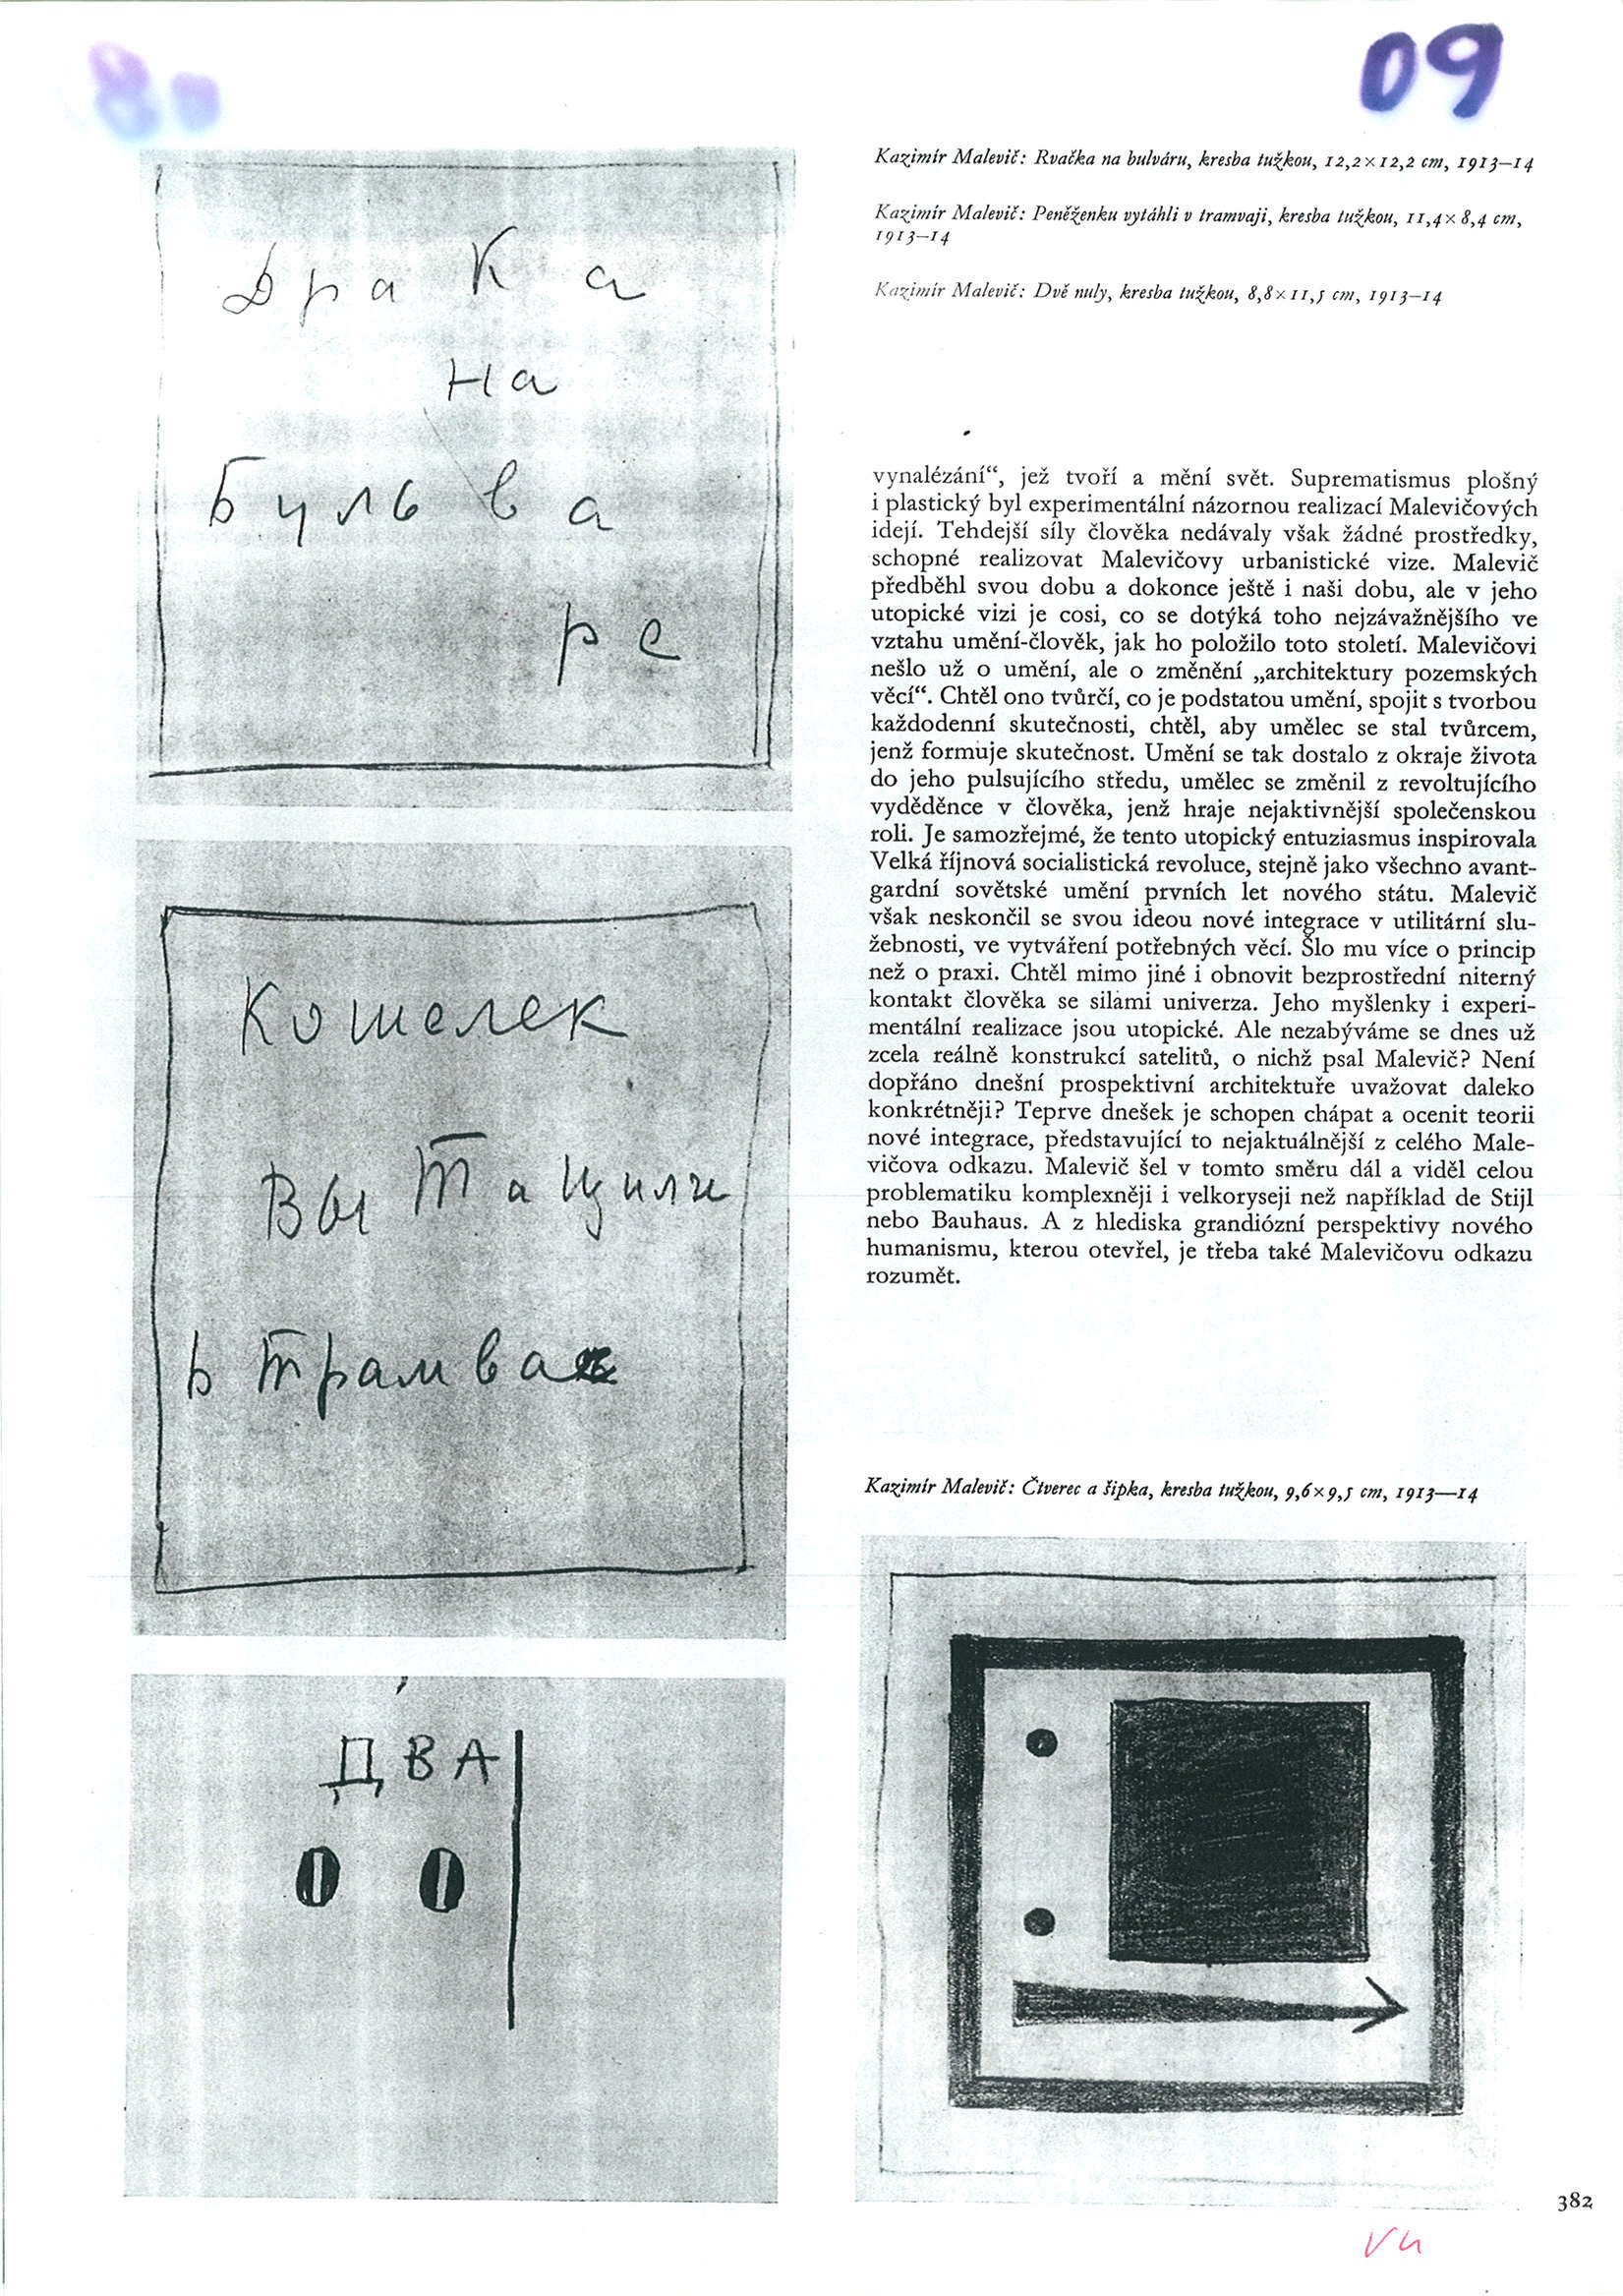 09
Драка
на
Бульва
ре
Кошелек
Вытащили
в трамвае
ДВА
0 0
Kazimír Malevič: Rvačka na bulváru, kresba tužkou, 12,2×12,2 cm, 1913–14
Kazimír Malevič: Peněženku vytáhli v tramvaji, kresba tužkou, 11,4×8,4 cm,
1913–14
Kazimír Malevič: Dvě nuly, kresba tužkou, 8,8×11,5 cm, 1913–14
vynalézání“, jež tvoří a mění svět. Suprematismus plošný
i plastický byl experimentální názornou realizací Malevičových
idejí. Tehdejší síly člověka nedávaly však žádné prostředky,
schopné realizovat Malevičovy urbanistické vize. Malevič
předběhl svou dobu a dokonce ještě i naši dobu, ale v jeho
utopické vizi je cosi, co se dotýká toho nejzávažnějšího ve
vztahu umění-člověk, jak ho položilo toto století. Malevičovi
nešlo už o umění, ale o změnění „architektury pozemských
věcí“. Chtěl ono tvůrčí, co je podstatou umění, spojit s tvorbou
každodenní skutečnosti, chtěl, aby umělec se stal tvůrcem,
jenž formuje skutečnost. Umění se tak dostalo z okraje života
do jeho pulsujícího středu, umělec se změnil z revoltujícího
vyděděnce v člověka, jenž hraje nejaktivnější společenskou
roli. Je samozřejmé, že tento utopický entuziasmus inspirovala
Velká říjnová socialistická revoluce, stejně jako všechno avant-
gardní sovětské umění prvních let nového státu. Malevič
však neskončil se svou ideou nové integrace v utilitární slu-
žebnosti, ve vytváření potřebných věcí. Šlo mu více o princip
než o praxi. Chtěl mimo jiné i obnovit bezprostřední niterný
kontakt člověka se silami univerza. Jeho myšlenky i experi-
mentální realizace jsou utopické. Ale nezabýváme se dnes už
zcela reálně konstrukcí satelitů, o nichž psal Malevič? Není
dopřáno dnešní prospektivní architektuře uvažovat daleko
konkrétněji? Teprve dnešek je schopen chápat a ocenit teorii
nové integrace, představující to nejaktuálnější z celého Male-
vičova odkazu. Malevič šel v tomto směru dál a viděl celou
problematiku komplexněji i velkoryseji než například de Stijl
nebo Bauhaus. A z hlediska grandiózní perspektivy nového
humanismu, kterou otevřel, je třeba také Malevičovu odkazu
rozumět.
Kazimír Malevič: Čtverec a šipka, kresba tužkou, 9,6×9,5 cm, 1913—14
382